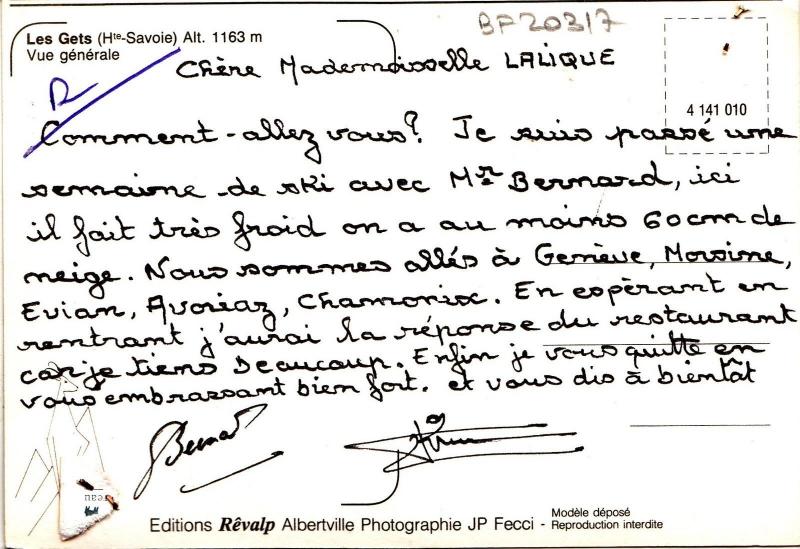 BF20317
Les Gets (Hte-Savoie) Alt. 1163 m
Vue générale
Chère Mademoisselle LALIQUE
R
4 141 010
Comment-allez vous? Je suis passé une
semaine de ski avec Mr Bernard, ici
il fait très froid on a au moins 60cm de
neige. Nous sommes allés à Genève, Morsine,
Evian, Avoriaz, Chamonix. En espèrant en
rentrant j'aurai la réponse du restaurant
car je tiens Beaucoup. Enfin je vous quitte en
vous embrassant bien fort. et vous dis à bientât
Bernard
Editions Rêvalp Albertville Photographie JP Fecci - Modèle déposé
Reproduction interdite